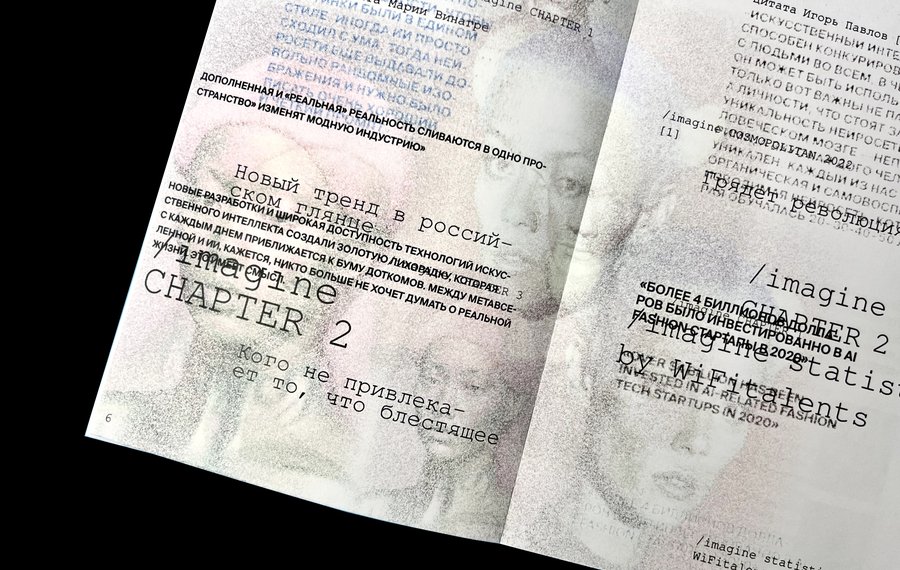 та Марии Винагре
imagine CHAPTER 1
НКИ БЫЛИ В ЕДИНОМ
СТИЛЕ. ИНОГДА ИИ ПРОСТО
СХОДИЛ С УМА. ТОГДА НЕЙ-
РОСЕТИ ЕЩЕ ВЫДАВАЛИ ДО-
ВОЛЬНО РАНДОМНЫЕ ИЗО-
БРАЖЕНИЯ И НУЖНО БЫЛО
ПИСАТЬ ОЧЕНЬ ХОРОШИЙ
ДОПОЛНЕННАЯ И «РЕАЛЬНАЯ» РЕАЛЬНОСТЬ СЛИВАЮТСЯ В ОДНО ПРО-
СТРАНСТВО» ИЗМЕНЯТ МОДНУЮ ИНДУСТРИЮ»
Новый тренд в россий-
ском глянце
НОВЫЕ РАЗРАБОТКИ И ШИРОКАЯ ДОСТУПНОСТЬ ТЕХНОЛОГИЙ ИСКУС-
СТВЕННОГО ИНТЕЛЛЕКТА СОЗДАЛИ ЗОЛОТУЮ ЛИХОРАДКУ, КОТОРАЯ
С КАЖДЫМ ДНЕМ ПРИБЛИЖАЕТСЯ К БУМУ ДОТКОМОВ. МЕЖДУ МЕТАВСЕ-
ЛЕННОЙ И ИИ, КАЖЕТСЯ, НИКТО БОЛЬШЕ НЕ ХОЧЕТ ДУМАТЬ О РЕАЛЬНОЙ
ЖИЗНИ.
/imagine
CHAPTER 2
Кого не привлека-
ет то, что блестящее
6
цитата Игорь Павлов [
ИСКУССТВЕННЫЙ ИНТЕ
СПОСОБЕН КОНКУРИРОВ
С ЛЮДЬМИ ВО ВСЕМ. В Ч
ОН МОЖЕТ БЫТЬ ИСПОЛЬ
ТОЛЬКО ВОТ ВАЖНЫ НЕ ПА
А ЛИЧНОСТИ, ЧТО СТОЯТ ЗА
УНИКАЛЬНОСТЬ НЕЙРОСЕТИ
ЛОВЕЧЕСКОМ МОЗГЕ
/imagine COSMOPOLITAN 2022
[1]
УНИКАЛЕН КАЖДЫЙ ИЗ НАС
ОРГАНИЧЕСКАЯ И САМОВОСП
Грядет революция
/imagine
CHAPTER 2
«БОЛЕЕ 4 БИЛЛИОНОВ ДОЛЛА-
РОВ БЫЛО ИНВЕСТИРОВАННО В AI
FASHION СТАРТАПЫ В 2020»
/imagine statist
by WiFitalents
INVESTED IN AI-RELATED FASHION
TECH STARTUPS IN 2020»
/imagine statisti
WiFitale